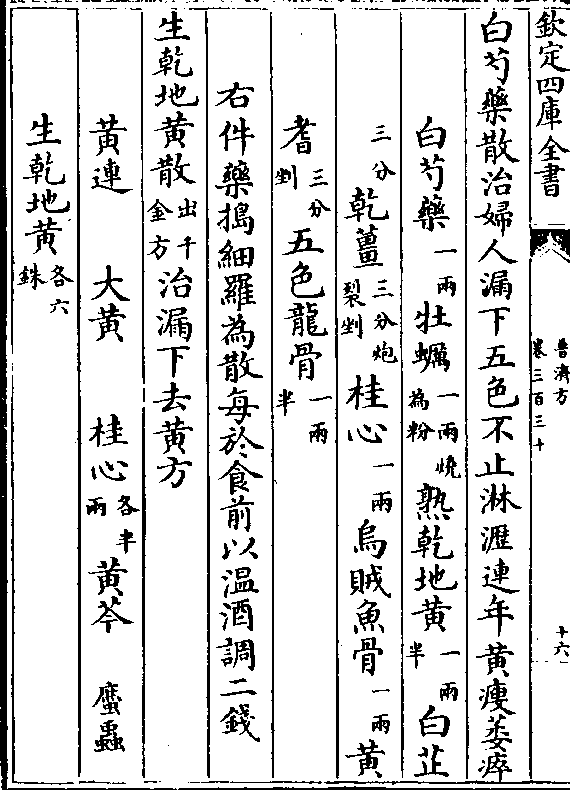 欽定四庫全書
普濟方
卷三百三十
十六
白芍藥散治婦人漏下五色不止淋瀝連年黃瘦萎瘁
白芍藥一兩牡蠣一兩燒為粉熟乾地黃一兩半白芷
三分乾薑三分炮裂剉桂心一兩烏賊魚骨一兩黃
耆三分剉五色龍骨一兩半
右件藥搗細羅為散每於食前以温酒調二錢
生乾地黃散出千金方治漏下去黃方
黃連 大黃 桂心各半兩黃芩 䗪蟲
生乾地黃各六銖